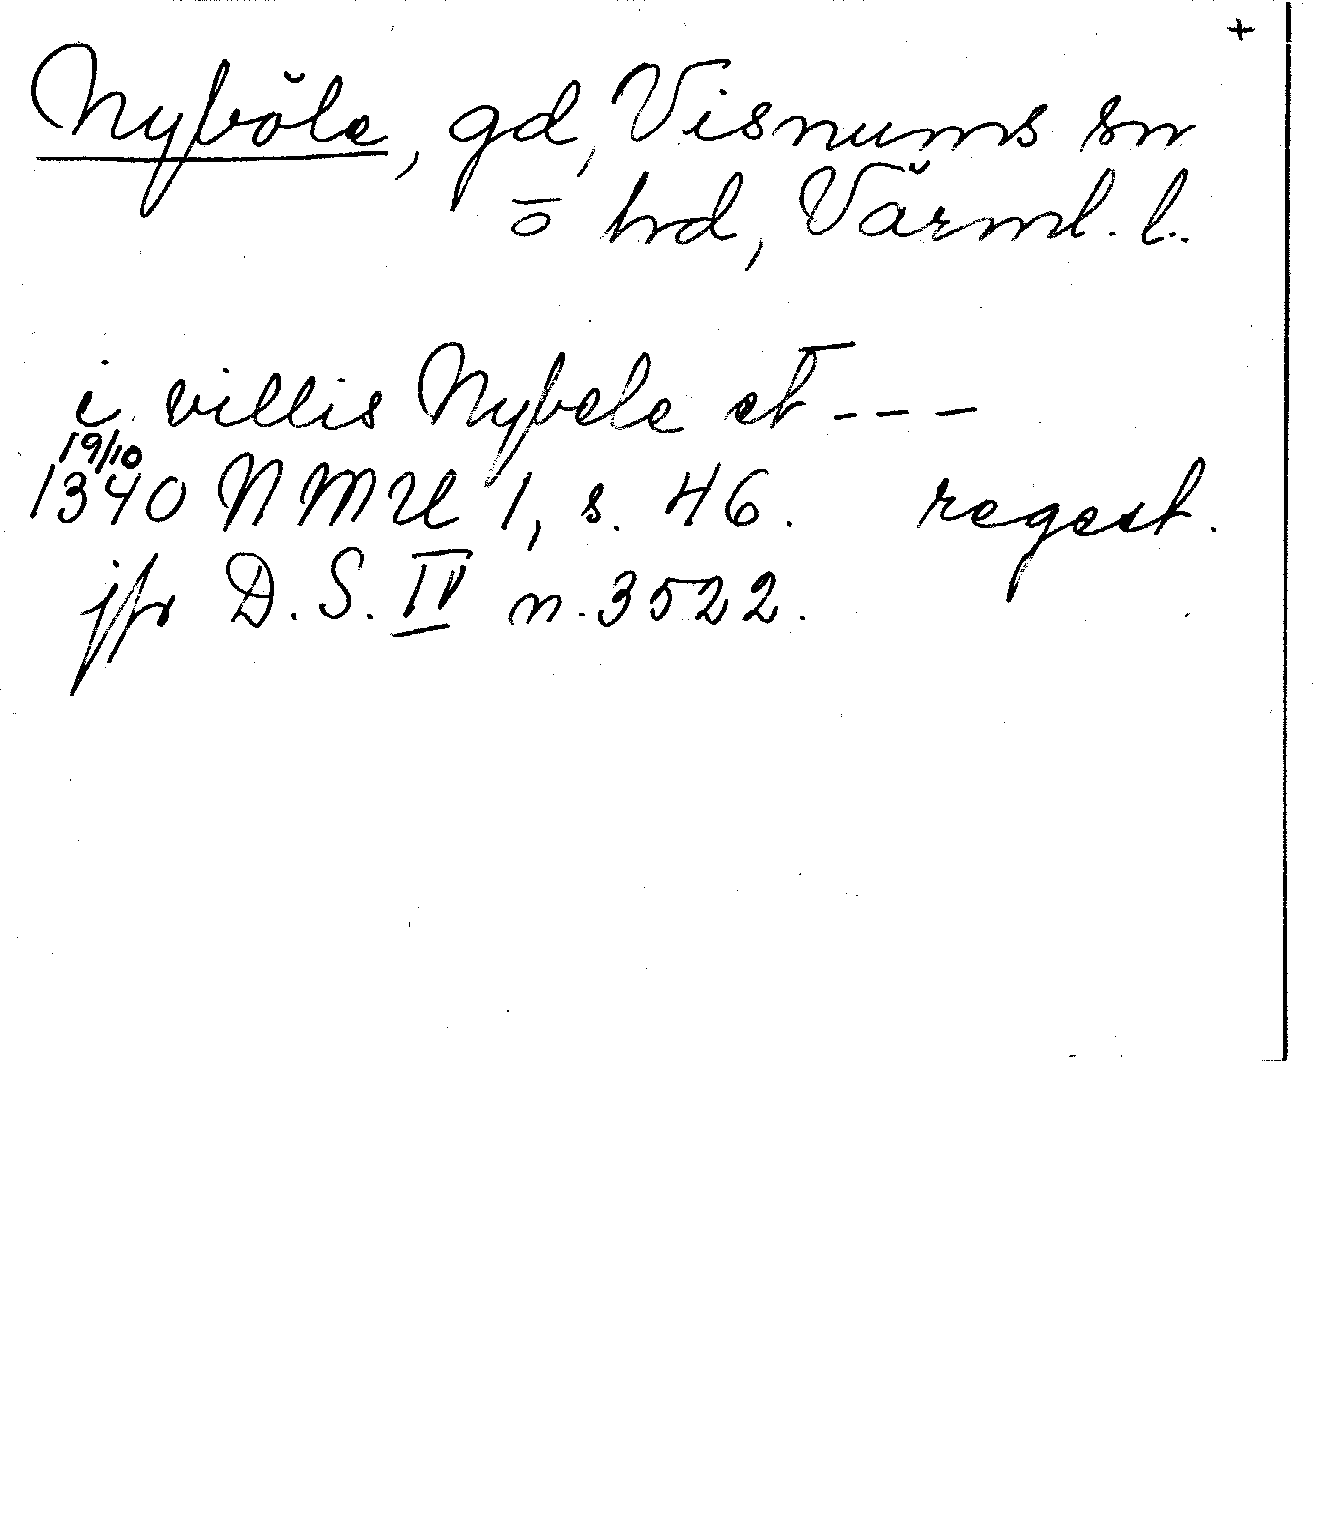 +
Nyböle, gd, Visnums sn
o hd, Värml. l.
i villis Nybele et - - -
19/10
1340 NMU 1, s. 46. regest.
jfr D. S. IV n. 3522.